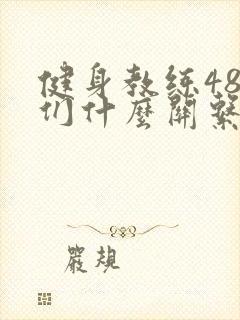 健身教练48
们什麼關繫
嚴規